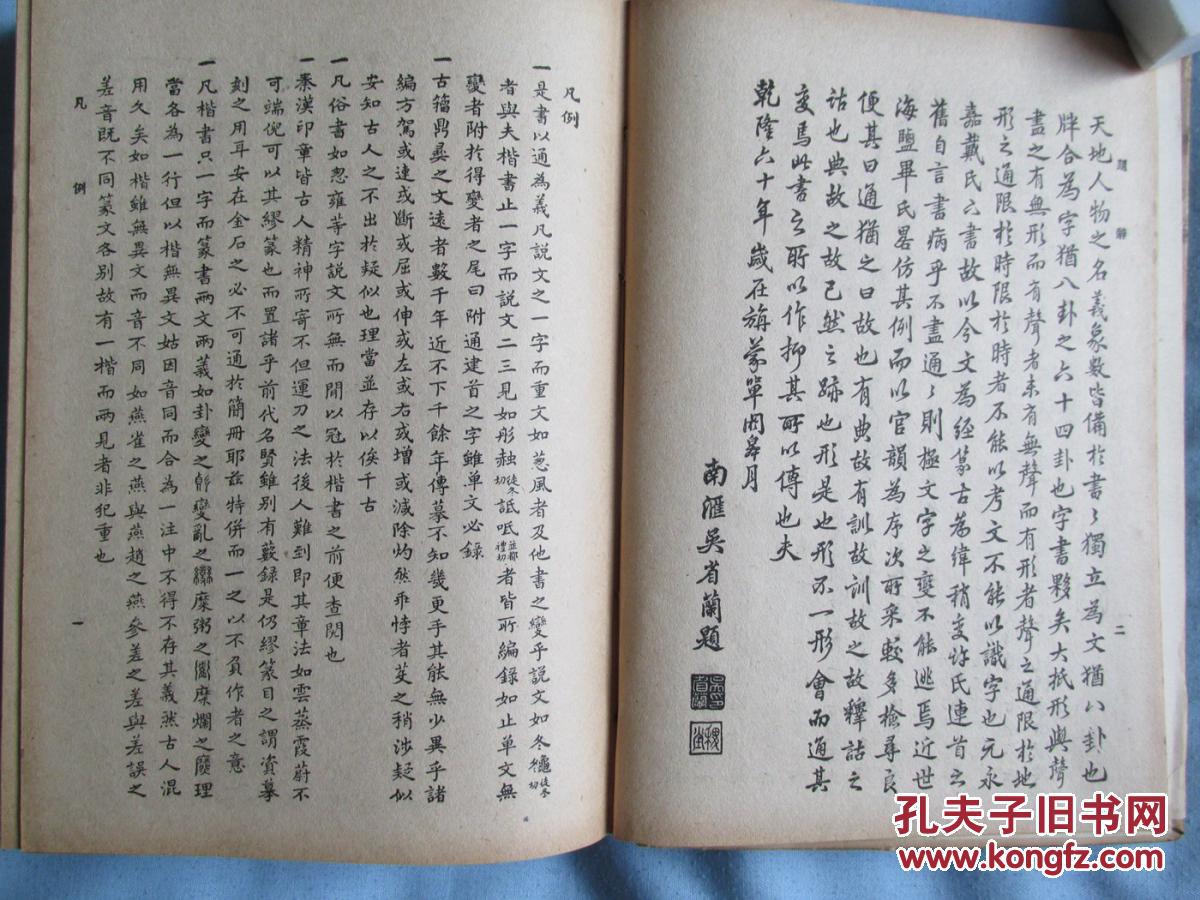 天地人物之名義象數皆備於書々獨立為文猶八卦也
牉合為字猶八卦之六十四卦也字書夥矣大抵形與聲
盡之有無形而有聲者未有無聲而有形者聲之通限於地
形之通限於時限於時者不能以考文不能以識字也元永
嘉戴氏六書故以今文為經篆古為緯稍變許氏連首之
舊自言書病乎不盡通々則極文字之變不能逃焉近世
海鹽畢氏畧仿其例而以官韻為序次所采較多檢尋良
便其曰通猶之曰故也有典故有訓故訓故之故釋詁之
詁也典故之故已然之跡也形是也形不一形會而通其
變焉此書之所以作抑其所以傳也夫
乾隆六十年歲在旃蒙單閼皋月
南滙吳省蘭題
二
凡例
一是書以通為義凡說文之一字而重文如蔥風者及他書之變乎說文如冬𪚰徒冬切
者與夫楷書止一字而說文二三見如彤赨徒冬切詆呧並都禮切者皆所編錄如止單文無
變者附於得變者之尾曰附通建首之字雖單文必錄
一古籀鼎彝之文遠者數千年近不下千餘年傳摹不知幾更手其能無少異乎諸
編方駕或連或斷或屈或伸或左或右或增或減除灼然乖悖者芟之稍涉疑似
安知古人之不出於疑似也理當並存以俟千古
一凡俗書如怱雍等字說文所無而間以冠於楷書之前便查閱也
一秦漢印章皆古人精神所寄不但運刀之法後人難到即其章法如雲蒸霞蔚不
可端倪可以其繆篆也而置諸乎前代名賢雖別有藪錄是仍繆篆目之謂資摹
刻之用耳安在金石之必不可通於簡冊耶茲特併而一之以不負作者之意
一凡楷書只一字而篆書兩文兩義如卦變之變亂之糜粥之糜爛之理
當各為一行但以楷無異文姑因音同而合為一注中不得不存其義然古人混
用久矣如楷雖無異文而音不同如燕雀之燕與燕趙之燕參差之差與差誤之
差音既不同篆文各別故有一楷而兩見者非犯重也
凡例
一
孔夫子旧书网
www.kongfz.com